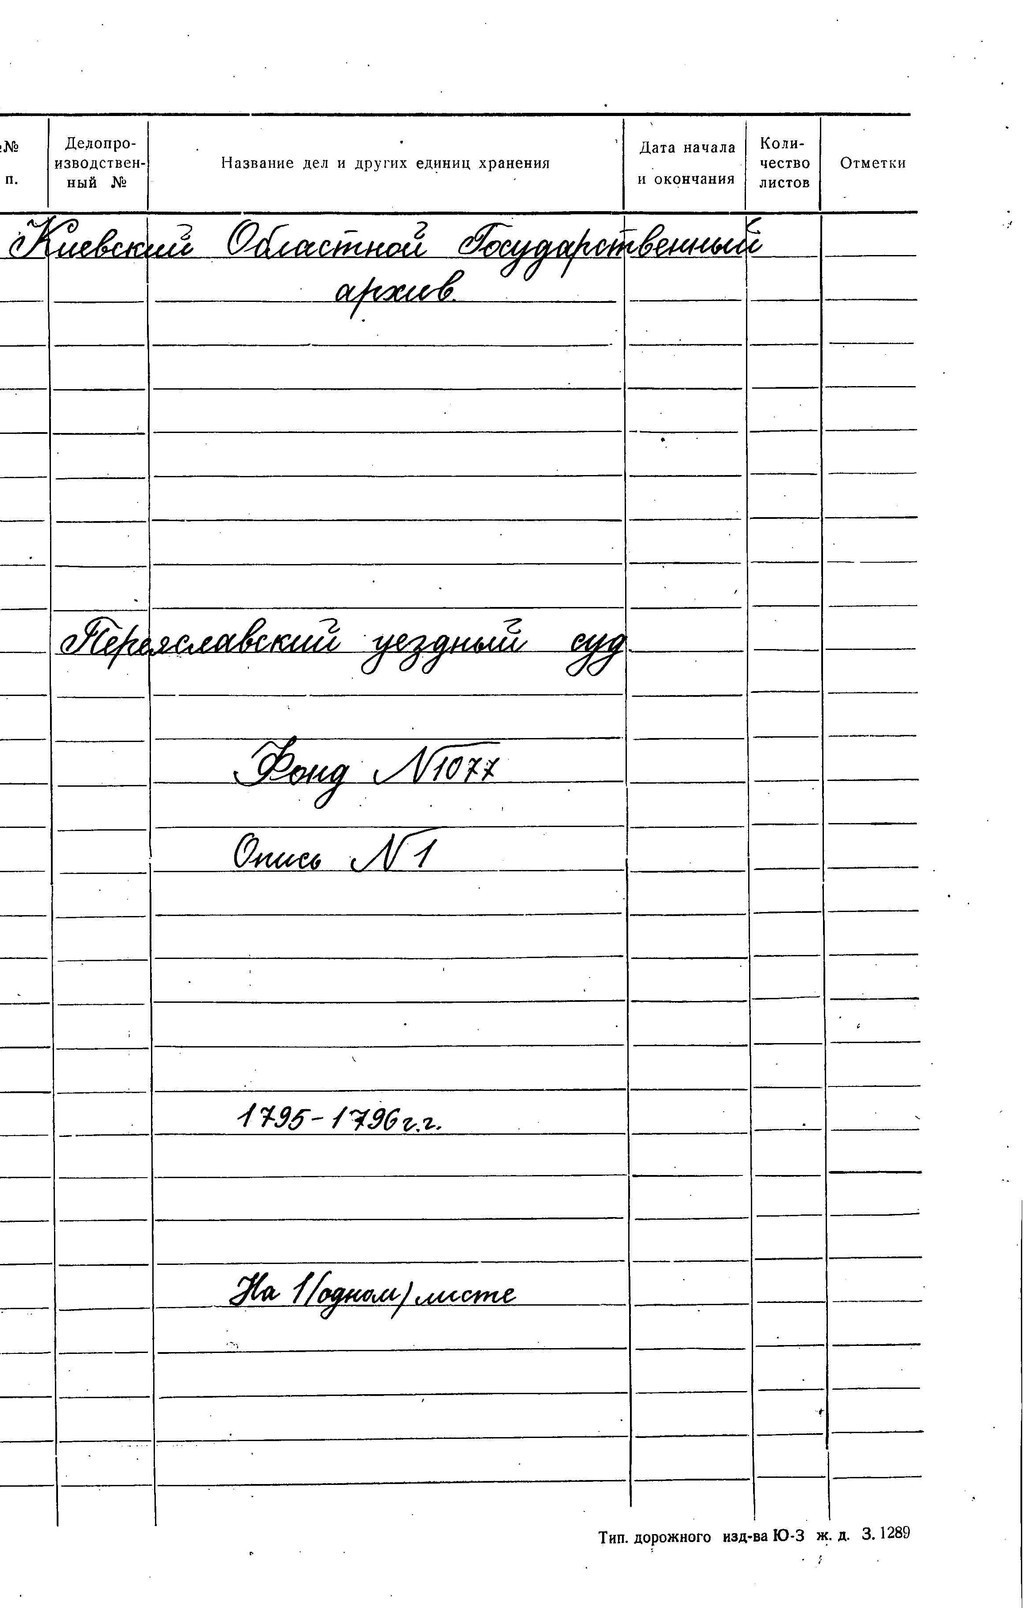 № п.
Делопро-
изводствен-
ный №
Название дел и других единиц хранения
Дата начала
и окончания
Коли-
чество
листов
Отметки
Киевский Областной Государственный
архив.
Переяславский уездный суд
Фонд N1077
Опись N1
1795-1796г.г.
На 1(одном) листе
Тип. дорожного изд-ва Ю-З ж. д. З. 1289